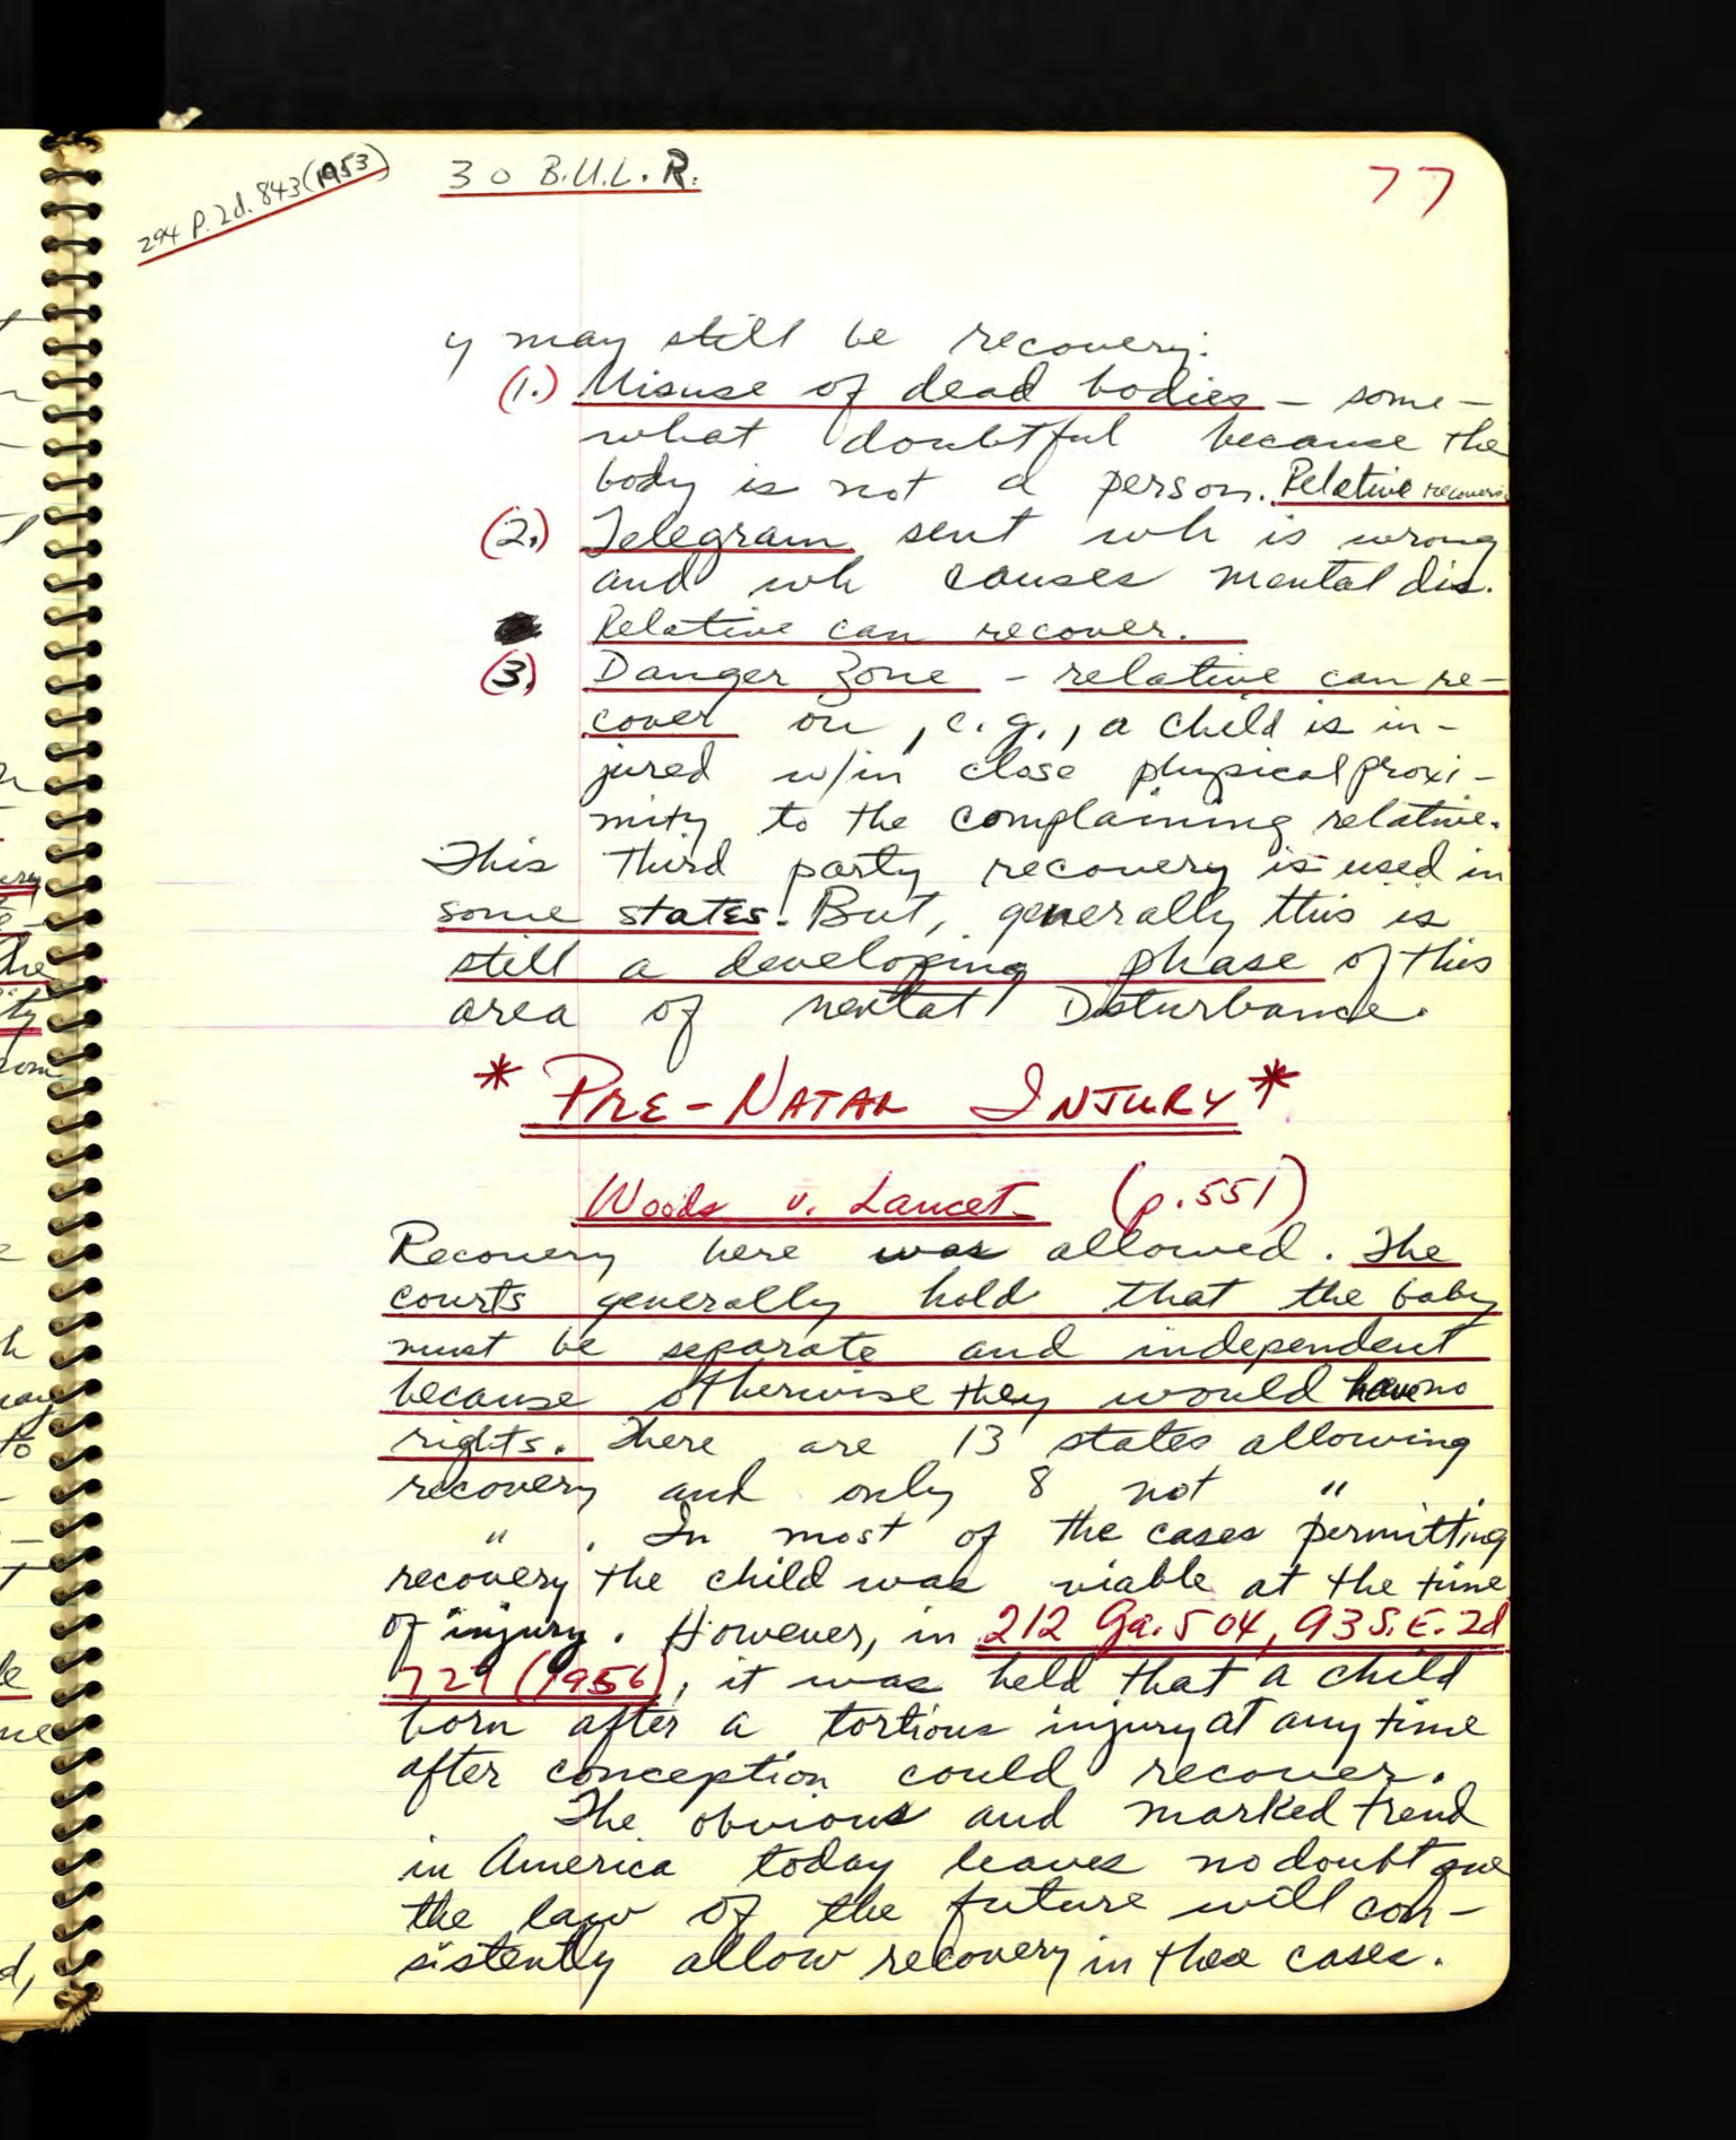 294 P. 2d. 843 (1953)
30 B.U.L.R.
77
y may still be recovery:
(1.) Misuse of dead bodies — some-
what doubtful because the
body is not a person. Relative
(2.) Telegram sent wh is wrong
and wh causes mental dis.
Relative can recover.
(3.) Danger Zone - relative can re-
cover on, e.g., a child is in-
jured w/in close physical proxi-
mity to the complaining relative.
This third party recovery is used in
some states. But, generally this is
still a developing phase of this
area of mental Disturbance.
* PRE-NATAL INJURY *
Woods v. Lancet (p.551)
Recovery here was allowed. The
courts generally hold that the baby
must be separate and independent
because otherwise they would have no
rights. There are 13 states allowing
recovery and only 8 not "
" . In most of the cases permitting
recovery the child was viable at the time
of injury. However, in 212 Ga. 504, 93 S.E. 2d
727 (1956), it was held that a child
born after a tortious injury at any time
after conception could recover.
The obvious and marked trend
in America today leaves no doubt que
the law of the future will con-
sistently allow recovery in these cases.